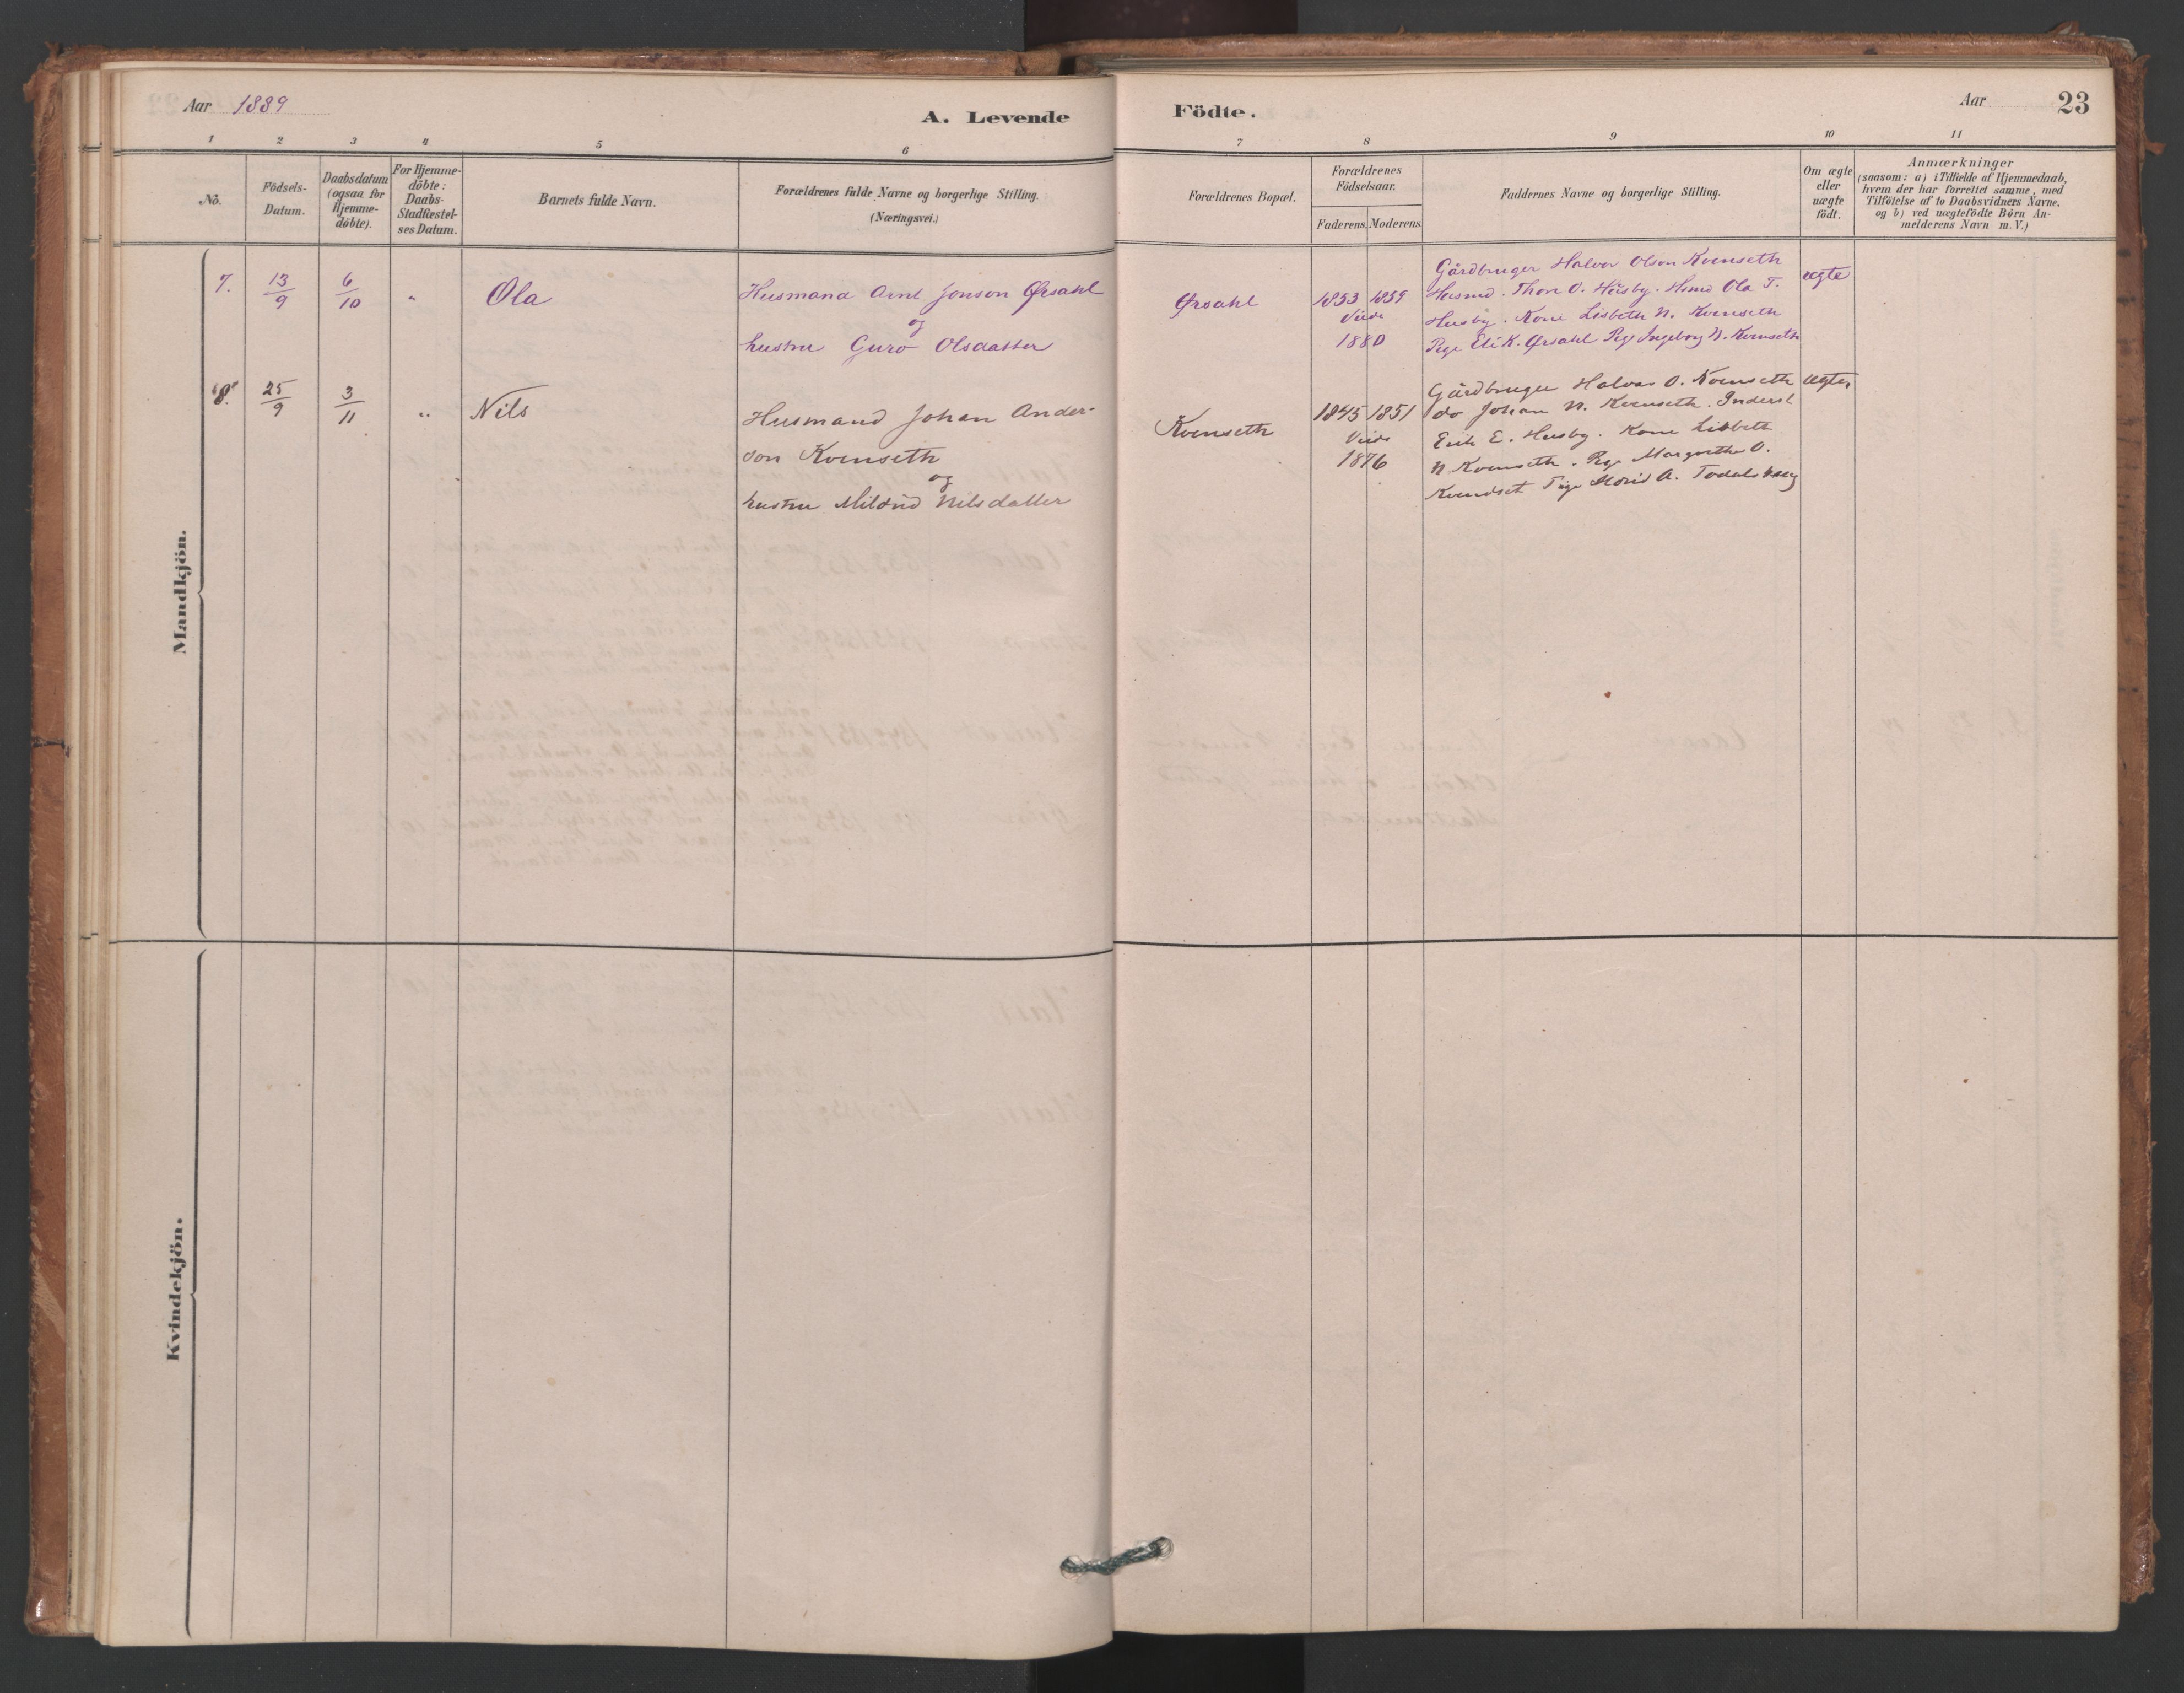 Aar 1889
A. Levende Födte.
Aar 23
1 2 3 4 5 6 7 8 9 10 11
No.
Födsels-
Datum.
Daabsdatum
(ogsaa for
Hjemme-
döbte).
For Hjemme-
döbte:
Daabs-
Stadfæstel-
ses Datum.
Barnets fulde Navn.
Forældrenes fulde Navne og borgerlige Stilling.
(Næringsvei.)
Forældrenes Bopæl.
Forældrenes
Födselsaar.
Faderens. Moderens.
Faddernes Navne og borgerlige Stilling.
Om ægte
eller
uægte
födt.
Anmærkninger
(saasom: a) i Tilfælde af Hjemmedaab,
hvem der har forrettet samme, med
Tilföielse af to Daabsvidners Navne,
og b) ved uægtefödte Börn An-
melderens Navn m.V.)
Mandkjön.
7. 13/9 6/10 " Ola
Husmand Arnt Jonson Ørsahl
og
hustru Guro Olsdatter
Ørsahl
1853 1859
Viede
1880
Gårdbruger Halvor Olson Kvenseth
Husmd. Thore O. Husby. Hsmd Ola T.
Husby. Kone Lisbeth N. Kvenseth
Pige Eli K. Ørsahl Pige Ingeborg N. Kvenseth
ægte
8. 25/9 3/11 " Nils
Husmand Johan Ander-
son Kvenseth
og
hustru Mildrid Nilsdatter
Kvenseth
1845 1851
Viede
1876
Gårdbruger Halvor O. Kvenseth
do Johan N. Kvenseth. Inderst
Erik E. Husby. Kone Lisbeth
N Kvenseth. Pige Margrethe O.
Kvendset Pige A. Todalshaug
ægte
Kvindekjön.